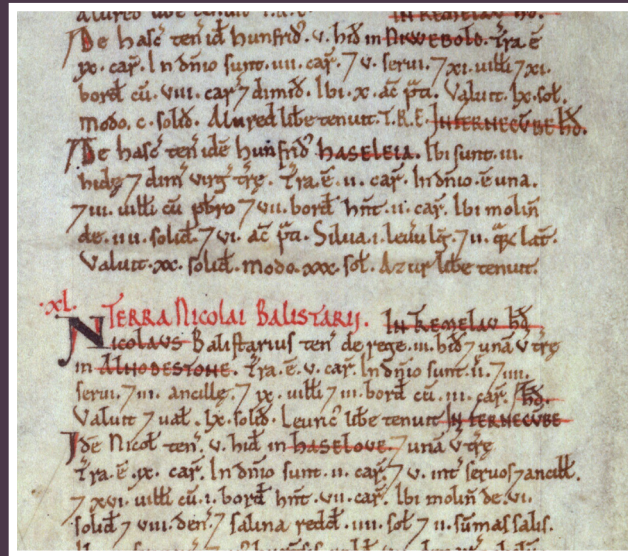 De hasc̄ ten̄ id hunfrid̕ .v. hid̄ in NIWEBOLD. T̄ra.ē
ıx. car̄. In dn̄io sunt .iiii. car̄. ⁊ v. serui. ⁊ xi. uilli ⁊ xi.
bord̄ cū .viii. car̄ ⁊ dimid̄. Ibi .x. ac̄ p̄ti. Valuit .lx. sol̄.
modo .c. solid̄. Alured libe tenuit. T.R.E. IN TERNECUBE HD̄.
De hasc̄ ten̄ idē hunfrid̕ HASELEIA. Ibi sunt .iii.
hidę ⁊ dim̄ uirg̕ tr̄ę. T̄ra.ē. ii. car̄. In dn̄io .ē una.
⁊ iii. uilli cū pb̄ro ⁊ vii. bord̄ hn̄t .ii. car̄. Ibi molin̄
de .iiii. solid̄. ⁊ vi. ac̄ p̄ti. Silua .i. leuu̕ lḡ. ⁊ ii. q̄ꝝ lat̄.
Valuit .xx. solid̄. modo .xxx. sol̄. Azur libe tenuit.
.XL. TERRA NICOLAI BALISTARIJ. IN TREMELAU HD̄
NICOLAVS Balistarius ten̄ de rege .iii. hid̄ ⁊ unā v̄ tr̄ę
in ALNODESTONE. T̄ra.ē. v. car̄. In dn̄io sunt .ii. ⁊ iiii.
serui. ⁊ iii. ancillę. ⁊ ix. uilli ⁊ iii. bord̄ cū .iii. car̄. HD̄.
Valuit ⁊ ual̄. lx. solid̄. Leuric̕ libe tenuit IN TERNECUBE
Idē Nicol̄ ten̄ .v. hid̄ in HASELOVE. ⁊ unā v̄ tr̄ę
T̄ra.ē. ix. car̄. In dn̄io sunt .ii. car̄. ⁊ v. int̄ seruos ⁊ ancill̄.
⁊ xvi. uilli cū .i. bord̄ hn̄t .vii. car̄. Ibi molin̄ de .vi.
solid̄ ⁊ viii. den̄. ⁊ salina redd̄ .iiii. sol̄ ⁊ ii. sūmas salis.